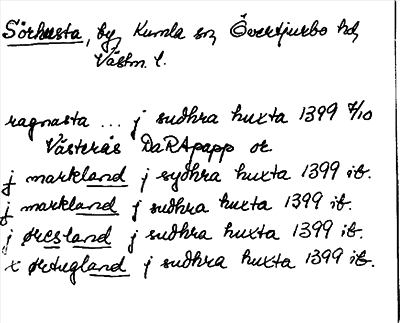 Sörhuxsta, by, Kumla sn, Övertjurbo hd,
Västm. l.
ragnasta ... j sudhra huxta 1399 4/10
Västerås DaRApapp or
j markland j sydhra huxta 1399 ib.
j markland j sudhra huxta 1399 ib.
j øresland j sudhra huxta 1399 ib.
x örtugland j sudhra huxta 1399 ib.